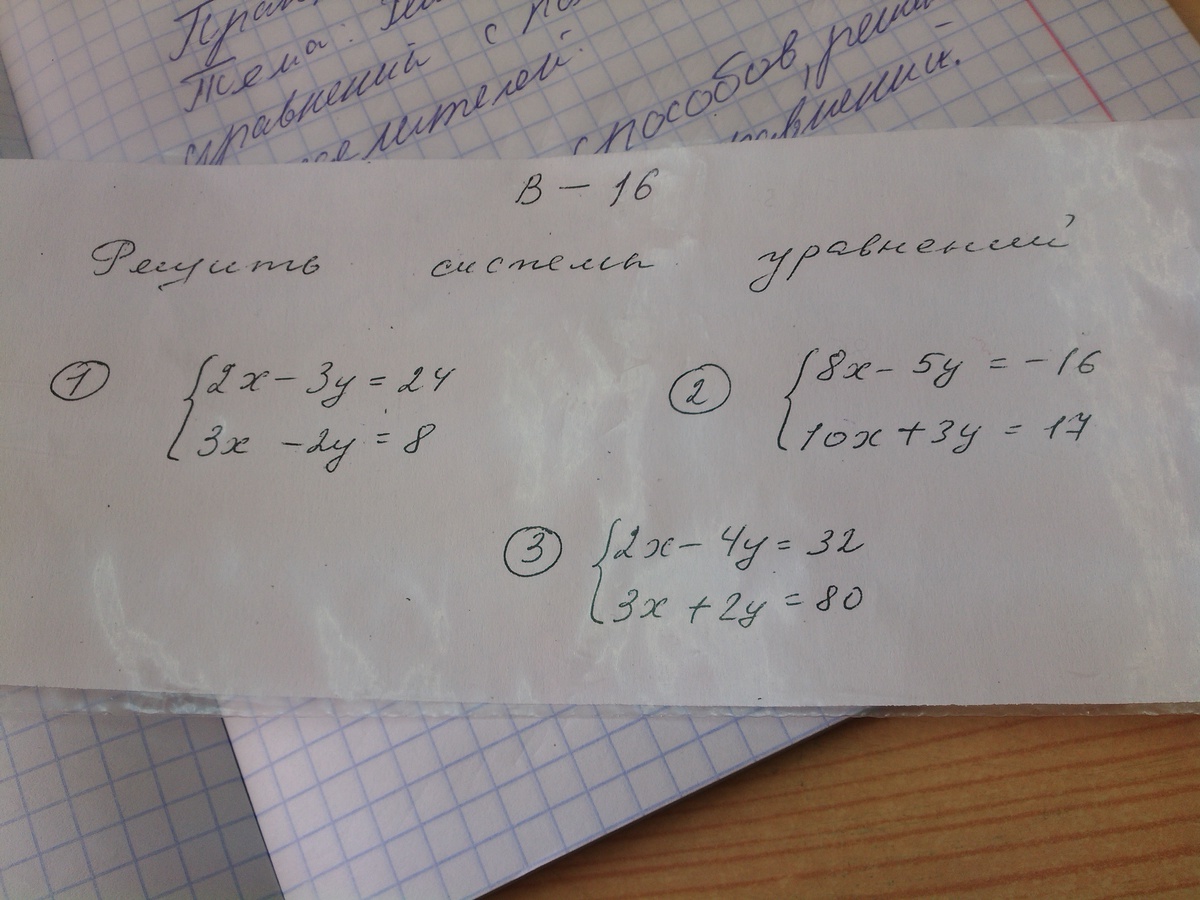 Тема:
уравнений с
способов, реше
В – 16
Решить системы уравнений
① {2x – 3y = 24
3x – 2y = 8
② {8x – 5y = –16
10x + 3y = 17
③ {2x – 4y = 32
3x + 2y = 80